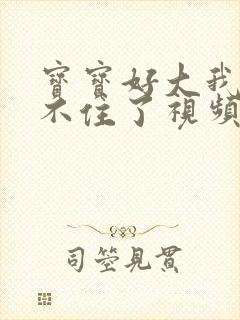 寶寶好大我
不住了視頻
司空見貫